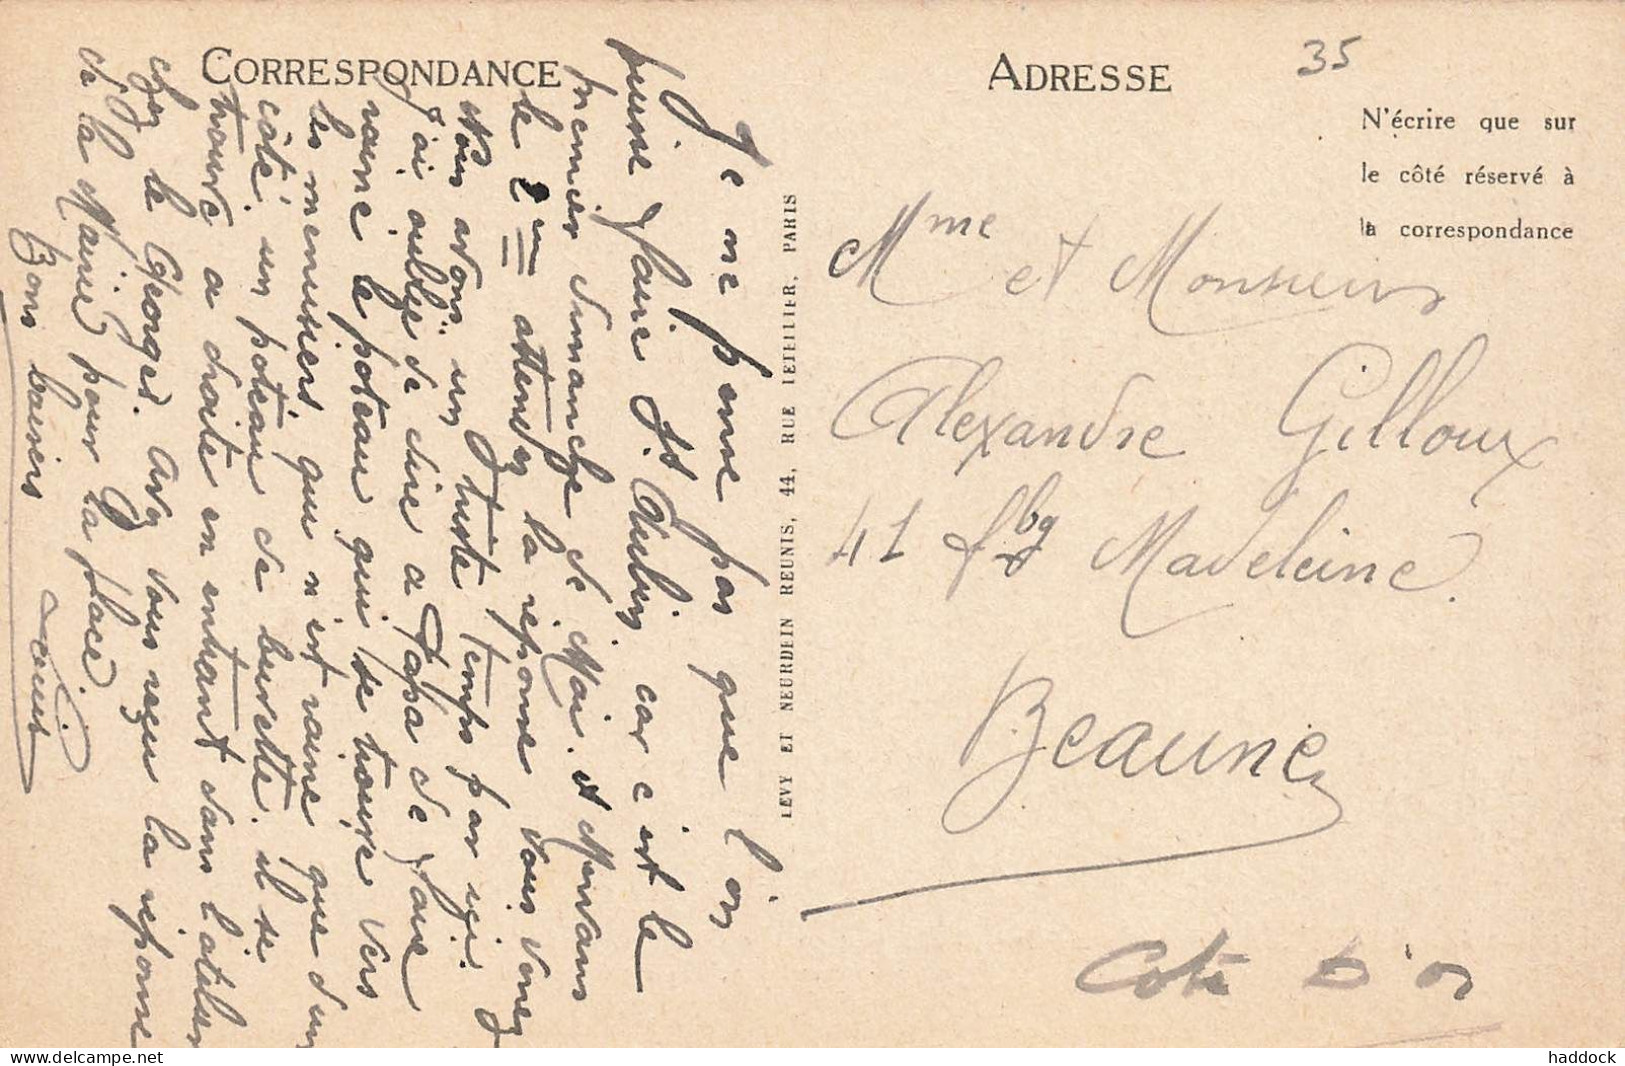 CORRESPONDANCE
Je ne pense pas que l'on
puisse faire St. Aubin car c'est le
premier dimanche de Mai. et Mervans
le 2me attendez la réponse. Vous venez
Nous avons un juste temps par ici.
J'ai oublié de dire a Papa de faire
raine le poteau qui se trouve vers
les menuisiers, qui n'est raine que d'un
côté, un poteau de buvette. il se
trouve a droite en entrant dans l'atelier
chez le Georges. Avez vous reçu la réponse
de la Mairie pour la place.
Bons baisers
LEVY ET NEURDEIN REUNIS, 44, RUE LETELLIER, PARIS
ADRESSE
35
N'écrire que sur
le côté réservé à
la correspondance
Mme et Monsieur
Alexandre Gilloux
41 fbg Madeleine.
Beaune
Cote d'or
delcampe.net
haddock